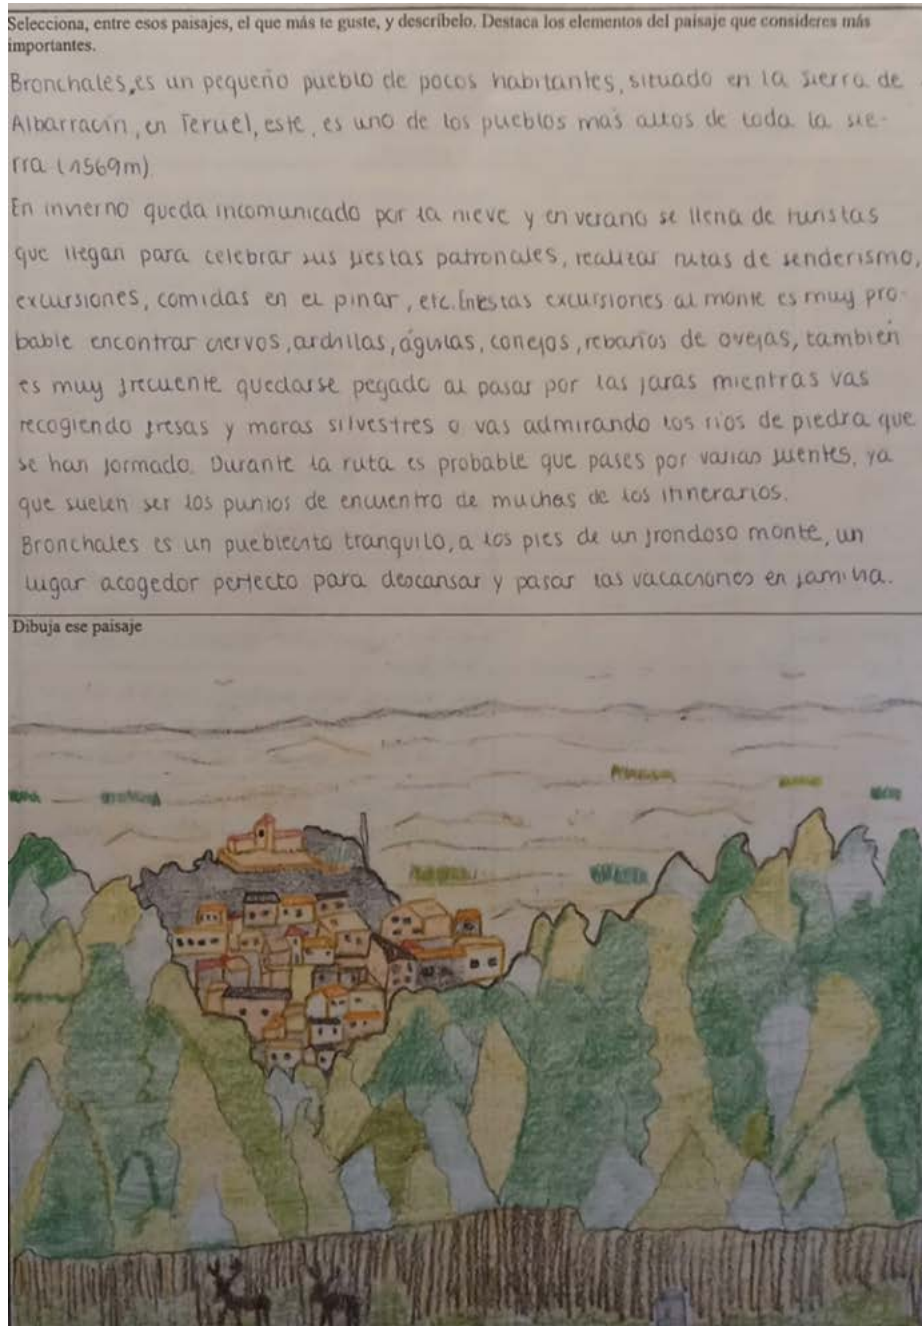 Selecciona, entre esos paisajes, el que más te guste, y descríbelo. Destaca los elementos del paisaje que consideres más
importantes.
Bronchales, es un pequeño pueblo de pocos habitantes, situado en la sierra de
Albarracín, en Teruel, este, es uno de los pueblos más altos de toda la sie-
rra (1569m)
En invierno queda incomunicado por la nieve y en verano se llena de turistas
que llegan para celebrar sus fiestas patronales, realizar rutas de senderismo,
excursiones, comidas en el pinar, etc. En estas excursiones al monte es muy pro-
bable encontrar ciervos, ardillas, águilas, conejos, rebaños de ovejas, también
es muy frecuente quedarse pegado al pasar por las jaras mientras vas
recogiendo fresas y moras silvestres o vas admirando los rios de piedra que
se han formado. Durante la ruta es probable que pases por varias fuentes, ya
que suelen ser los puntos de encuentro de muchas de los itinerarios.
Bronchales es un pueblecito tranquilo, a los pies de un frondoso monte, un
lugar acogedor perfecto para descansar y pasar las vacaciones en familia.
Dibuja ese paisaje